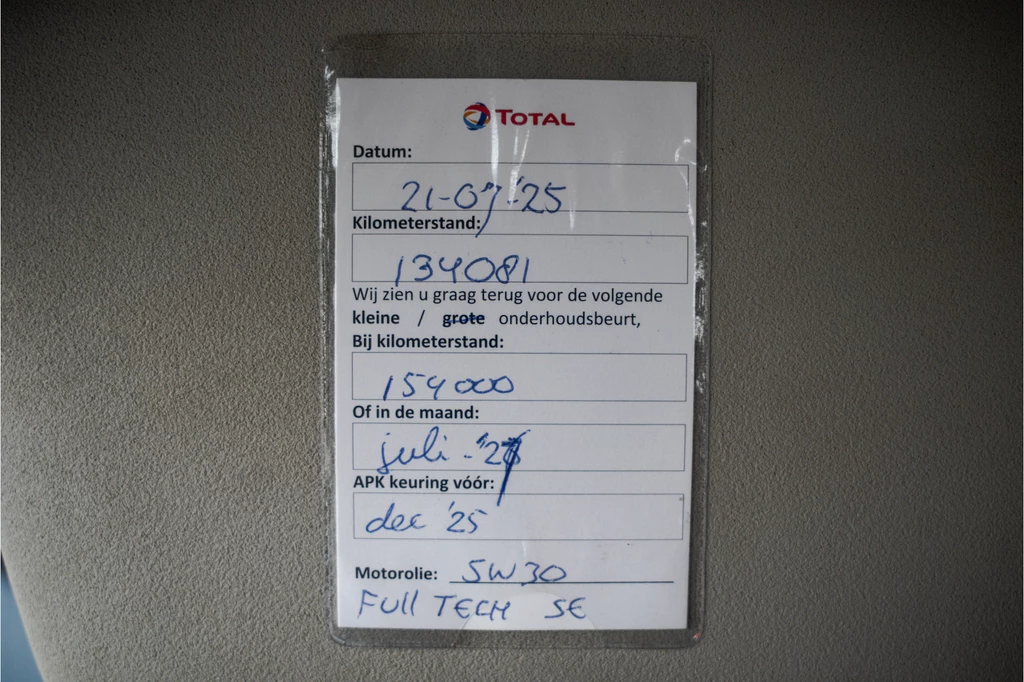 TOTAL
Datum:
21-07-'25
Kilometerstand:
134081
Wij zien u graag terug voor de volgende
kleine / grote onderhoudsbeurt,
Bij kilometerstand:
154000
Of in de maand:
juli - '27
APK keuring vóór:
dec '25
Motorolie: 5W30
FUll TECH SE